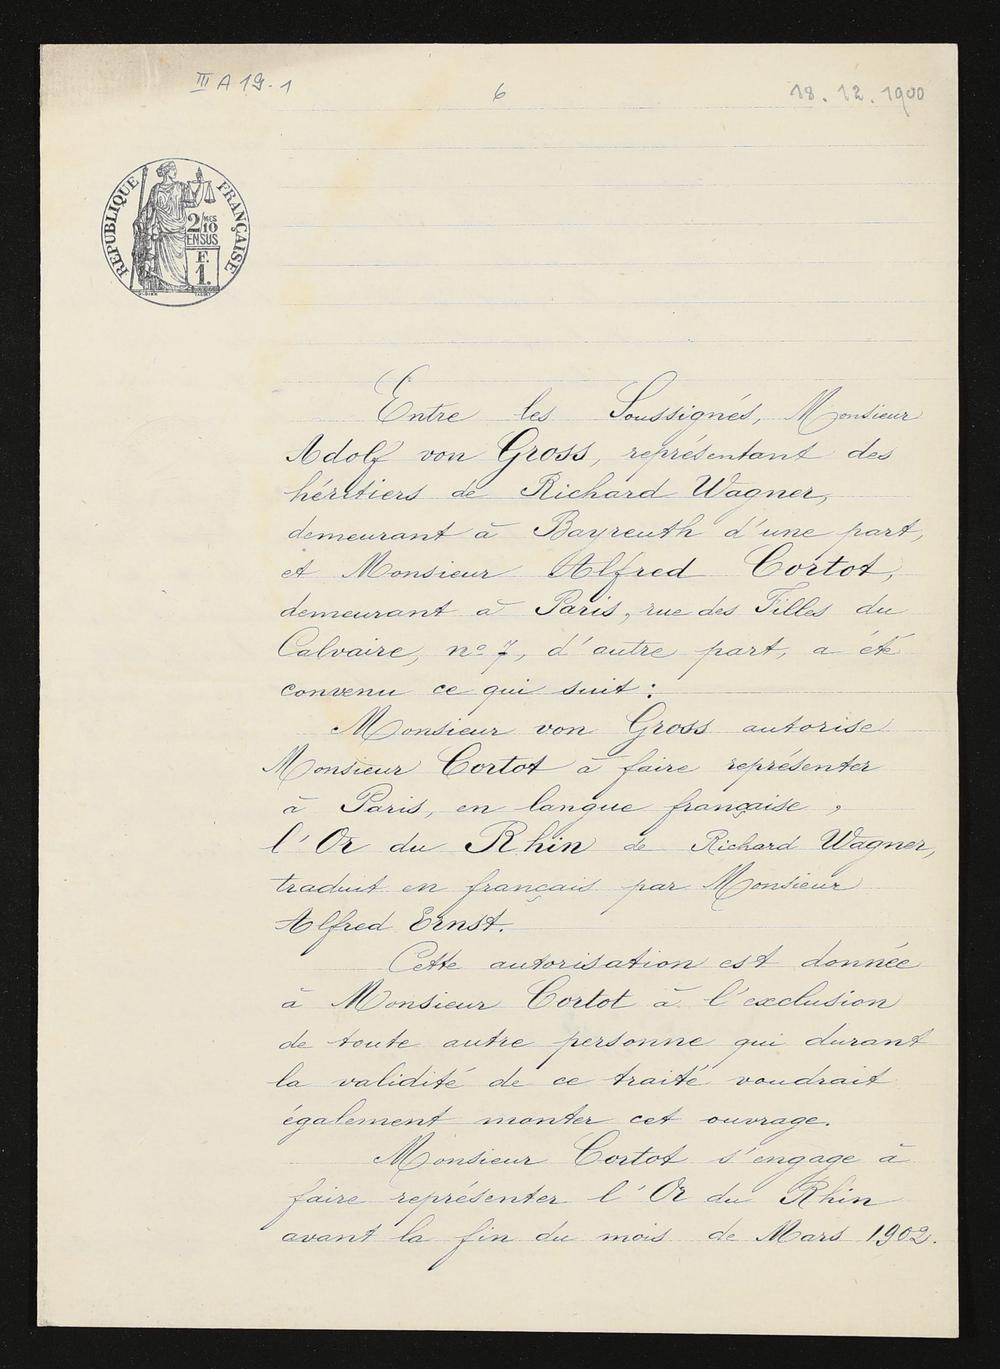 III A 19-1
6
18.12.1900
RÉPUBLIQUE FRANÇAISE
2/MES
10
EN SUS
F.
1.
Entre les Soussignés, Monsieur
Adolf von Gross, représentant des
héritiers de Richard Wagner,
demeurant à Bayreuth d'une part,
et Monsieur Alfred Cortot,
demeurant à Paris, rue des Filles du
Calvaire, no 7, d'autre part, a été
convenu ce qui suit :
Monsieur von Gross autorise
Monsieur Cortot à faire représenter
à Paris, en langue française,
l'Or du Rhin de Richard Wagner,
traduit en français par Monsieur
Alfred Ernst.
Cette autorisation est donnée
à Monsieur Cortot à l'exclusion
de toute autre personne qui durant
la validité de ce traité voudrait
également monter cet ouvrage.
Monsieur Cortot s'engage à
faire représenter l'Or du Rhin
avant la fin du mois de Mars 1902.